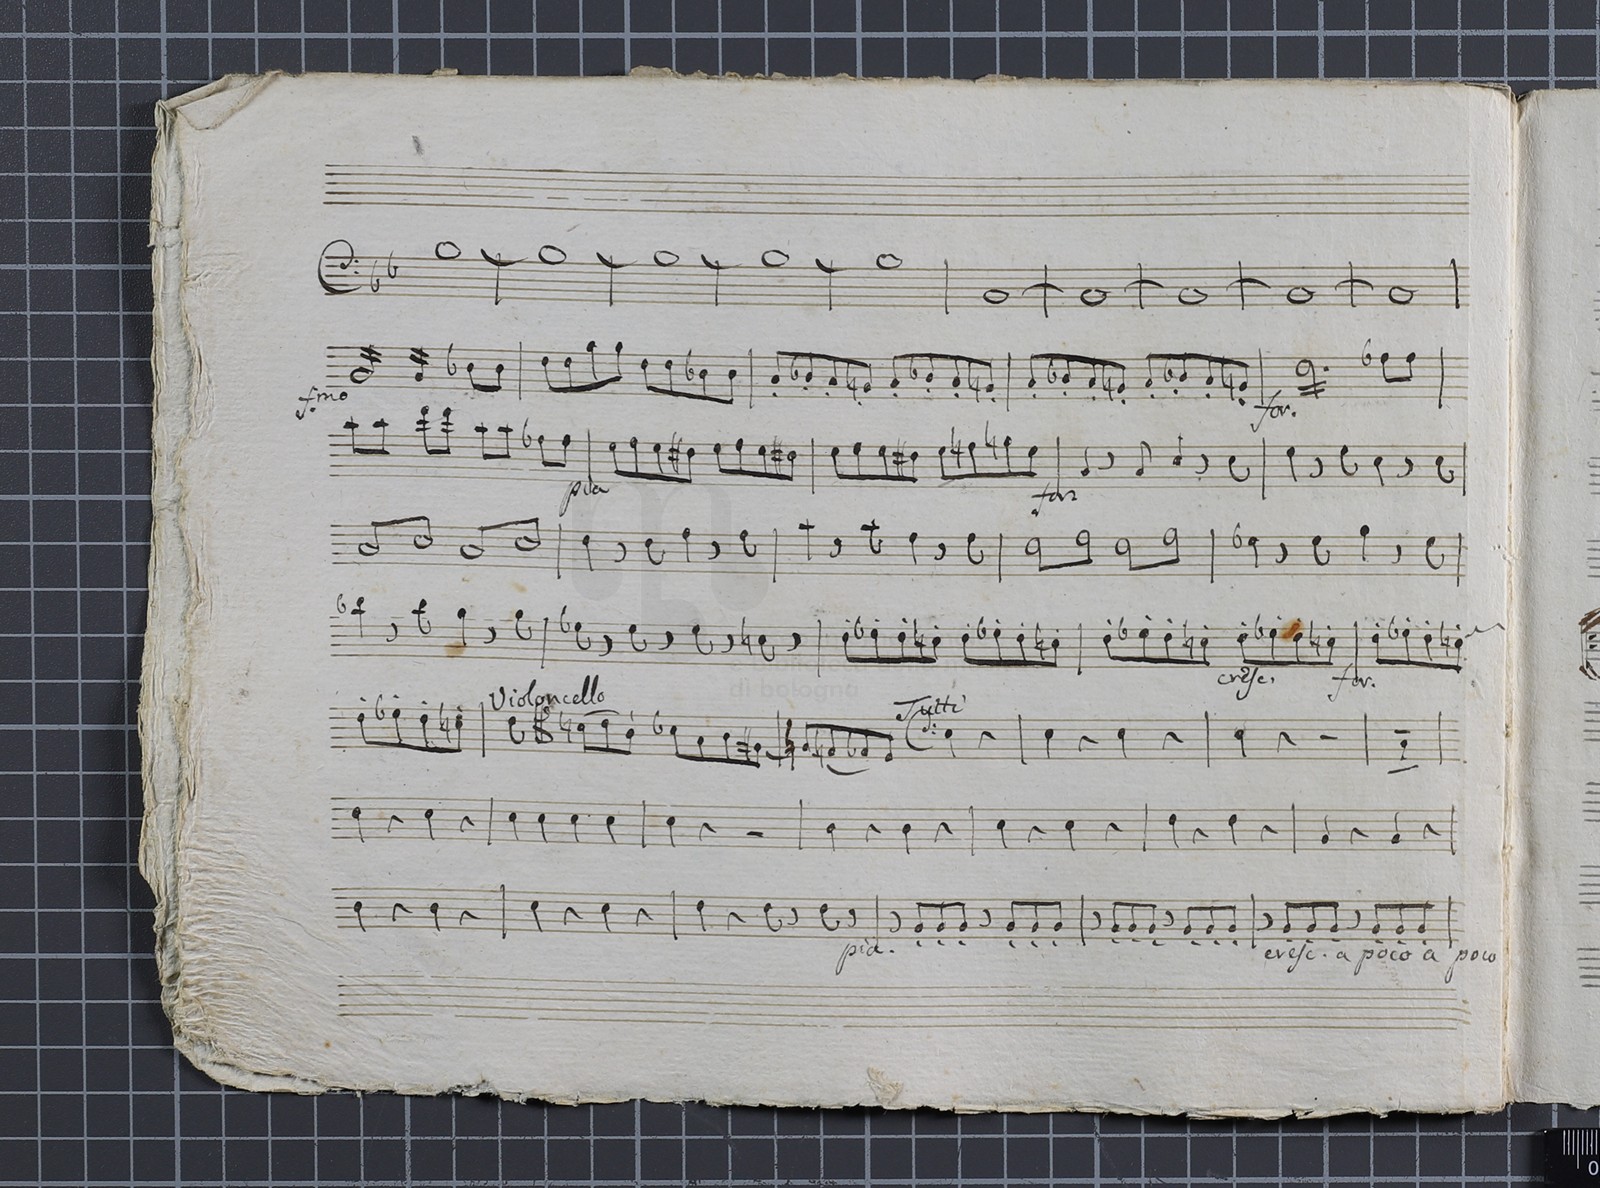 f.mo for.
pia for
cresc. for.
Violoncello Tutti
di bologna
pia. cresc. a poco a poco
0